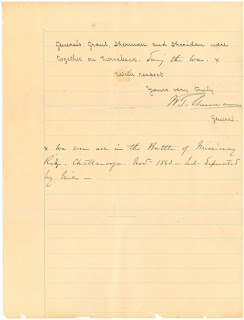 Generals Grant, Sherman and Sheridan were
together on horseback. During the war. x
With respect
Yours very truly
W. T. Sherman
General.
x We were all in the Battle of Missionary
Ridge. Chattanooga. Novr 1863 — but separated
by miles —